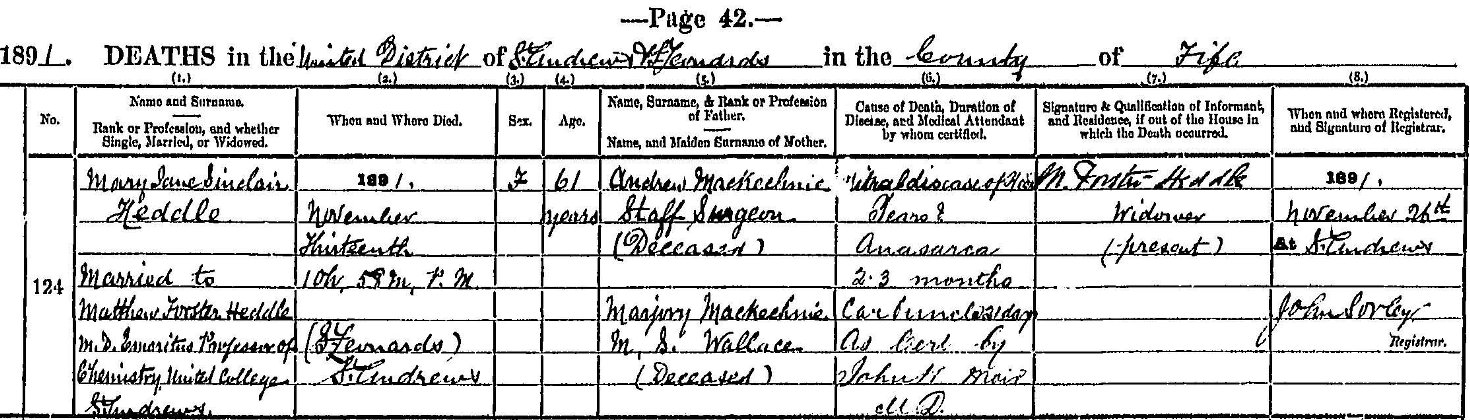 —Page 42.—
1891. DEATHS in the United District of St Andrews & St Leonards in the County of Fife
(1.) (2.) (3.) (4.) (5.) (6.) (7.) (8.)
No.
Name and Surname.
Rank or Profession, and whether
Single, Married, or Widowed.
When and Where Died.
Sex.
Age.
Name, Surname, & Rank or Profession
of Father.
Name, and Maiden Surname of Mother.
Cause of Death, Duration of
Disease, and Medical Attendant
by whom certified.
Signature & Qualification of Informant,
and Residence, if out of the House in
which the Death occurred.
When and where Registered,
and Signature of Registrar.
124
Mary Jane Sinclair
Heddle
Married to
Matthew Forster Heddle
M.D. Emeritus Professor of
Chemistry United College
St Andrews.
1891.
November
Thirteenth
10h, 58m, P.M.
(St Leonards)
St Andrews
F
61
years
Andrew Mackechnie
Staff Surgeon
(Deceased)
Marjory Mackechnie
M. S. Wallace
(Deceased)
Mitral disease of
Years?
Anasarca
2-3 months
Carbuncle 21 days
As Cert by
John W Moir
M.D.
M. Forster Heddle
Widower
(present)
1891.
November 26th
At St Andrews
John Sorley
Registrar.